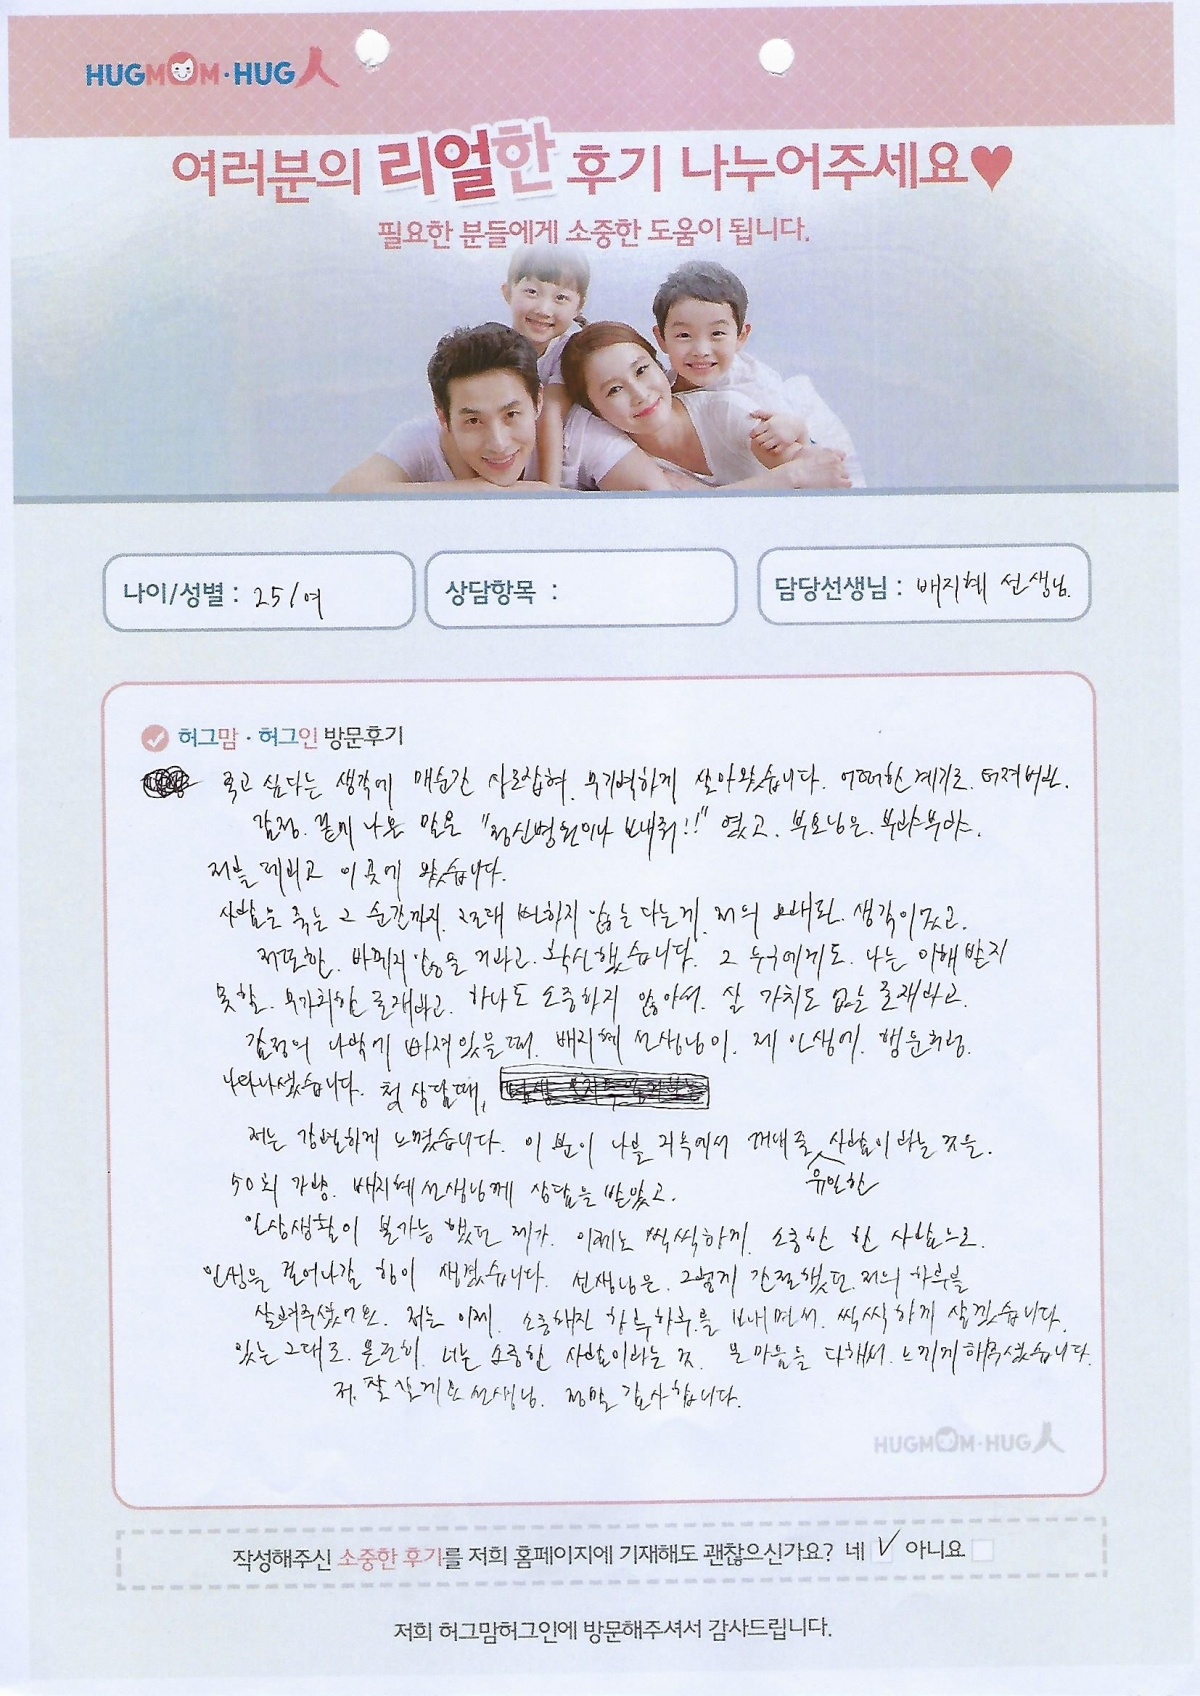 HUGMOM·HUG人
여러분의 리얼한 후기 나누어주세요♥
필요한 분들에게 소중한 도움이 됩니다.
나이/성별 : 25/여
상담항목 :
담당선생님 : 배지혜 선생님.
허그맘·허그인 방문후기
죽고 싶다는 생각에 매순간 사로잡혀. 무기력하게 살아왔습니다. 어떠한 계기로. 터져버린.
감정. 같이 나온 말은 "정신병원이나 보내줘!!" 였고. 부모님은. 부랴부랴.
저를 데리고 이 곳에 왔습니다.
사람은 죽는 그 순간까지. 절대 변하지 않는 다는게. 저의 오래된. 생각이었고.
저또한. 바뀌지 않을 거라고. 확신했습니다. 그 누구에게도. 나는 이해받지
못할. 무가치한 존재라고. 하나도 소중하지 않아서. 살 가치도 없는 존재라고.
감정의 나락에 빠져있을때. 배지혜 선생님이. 제 인생에. 행운처럼.
나타나셨습니다. 첫 상담때,
저는 강렬하게 느꼈습니다. 이 분이 나를 지옥에서 꺼내줄 유일한 사람이라는 것을.
50회 가량. 배지혜선생님께 상담을 받았고.
일상생활이 불가능했던 제가. 이제는 씩씩하게. 소중한 한 사람으로.
인생을 걸어나갈 힘이 생겼습니다. 선생님은. 그렇게 간절했던. 저의 하루를
살려주셨어요. 저는 이제. 소중해진 하루하루를 보내면서. 씩씩하게 살겠습니다.
있는 그대로. 온전히. 너는 소중한 사람이라는 것. 온 마음을 다해서. 느끼게 해주셨습니다.
저. 잘 살게요 선생님. 정말 감사합니다.
HUGMOM·HUG人
작성해주신 소중한 후기를 저희 홈페이지에 기재해도 괜찮으신가요? 네 ✓ 아니요
저희 허그맘허그인에 방문해주셔서 감사드립니다.